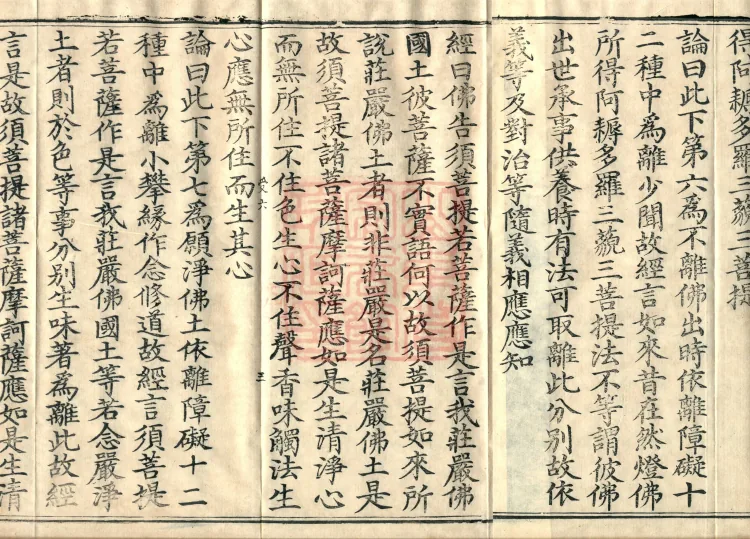 得阿耨多羅三藐三菩提
論曰此下第六為不離佛出時依離障礙十
二種中為離少聞故經言如來昔在然燈佛
所得阿耨多羅三藐三菩提法不等謂彼佛
出世承事供養時有法可取離此分別故依
義等及對治等隨義相應應知
經曰佛告須菩提若菩薩作是言我莊嚴佛
國土彼菩薩不實語何以故須菩提如來所
說莊嚴佛土者則非莊嚴是名莊嚴佛土是
故須菩提諸菩薩摩訶薩應如是生清淨心
而無所住不住色生心不住聲香味觸法生
心應無所住而生其心
受六
三
論曰此下第七為願淨佛土依離障礙十二
種中為離小攀緣作念修道故經言須菩提
若菩薩作是言我莊嚴佛國土等若念嚴淨
土者則於色等事分別生味著為離此故經
言是故須菩提諸菩薩摩訶薩應如是生清